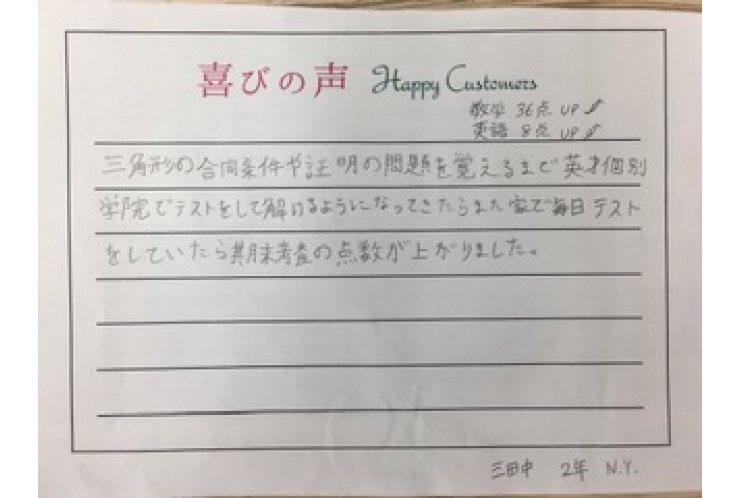 喜びの声 Happy Customers
数学 36点 UP↗
英語 8点 UP↗
三角形の合同条件や証明の問題を覚えるまで英才個別
学院でテストをして解けるようになってきたらまた家で毎日テスト
をしていたら期末考査の点数が上がりました。
三田中 2年 N.Y.